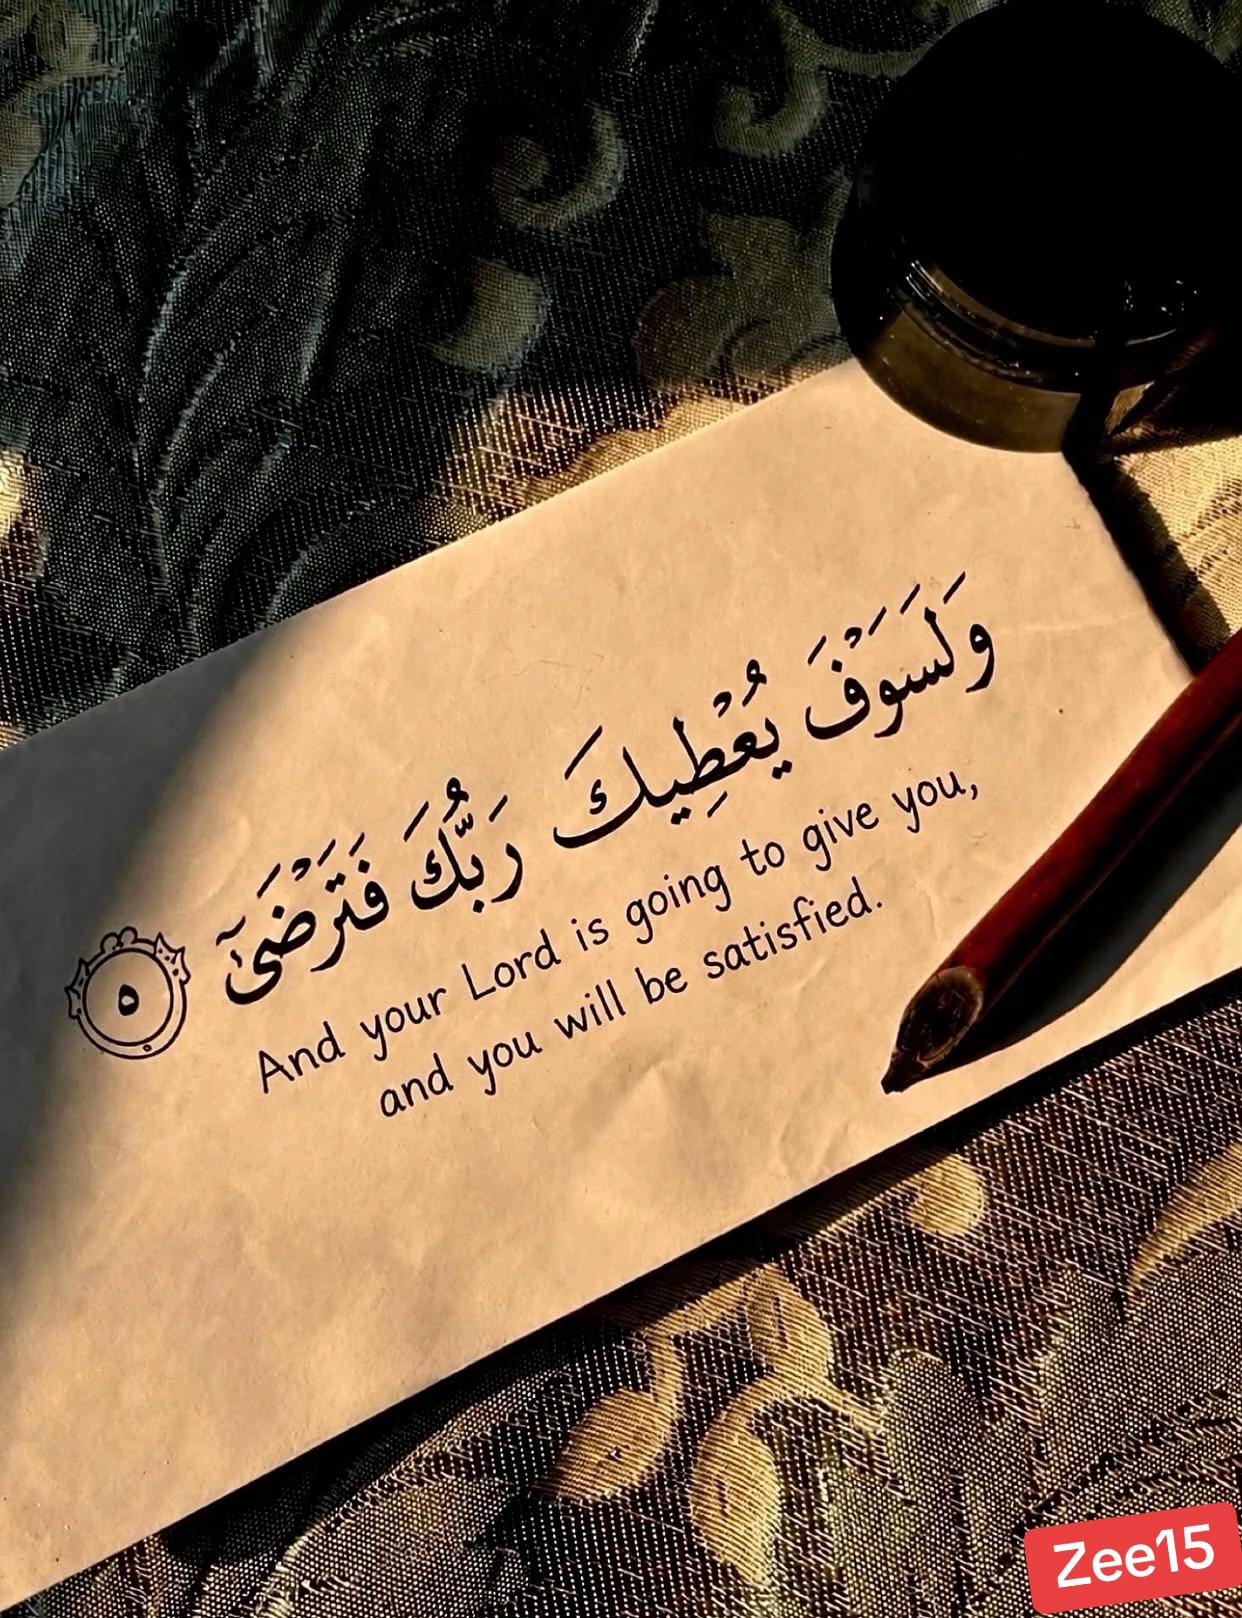 وَلَسَوْفَ يُعْطِيكَ رَبُّكَ فَتَرْضَىٰٓ ٥
And your Lord is going to give you,
and you will be satisfied.
Zee15